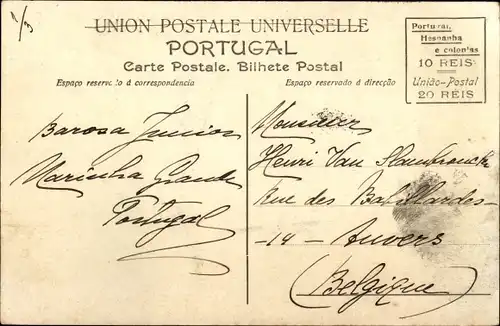 1/3
UNION POSTALE UNIVERSELLE
PORTUGAL
Carte Postale. Bilhete Postal
Portugal,
Hespanha
e colonias
10 REIS
União-Postal
20 REIS
Espaço reservado á correspondencia
Espaço reservado á direcção
Barosa Junior
Marinha Grande
Portugal
Monsieur
Henri Van
Rue des Babillardes
-14- Anvers
(Belgique)